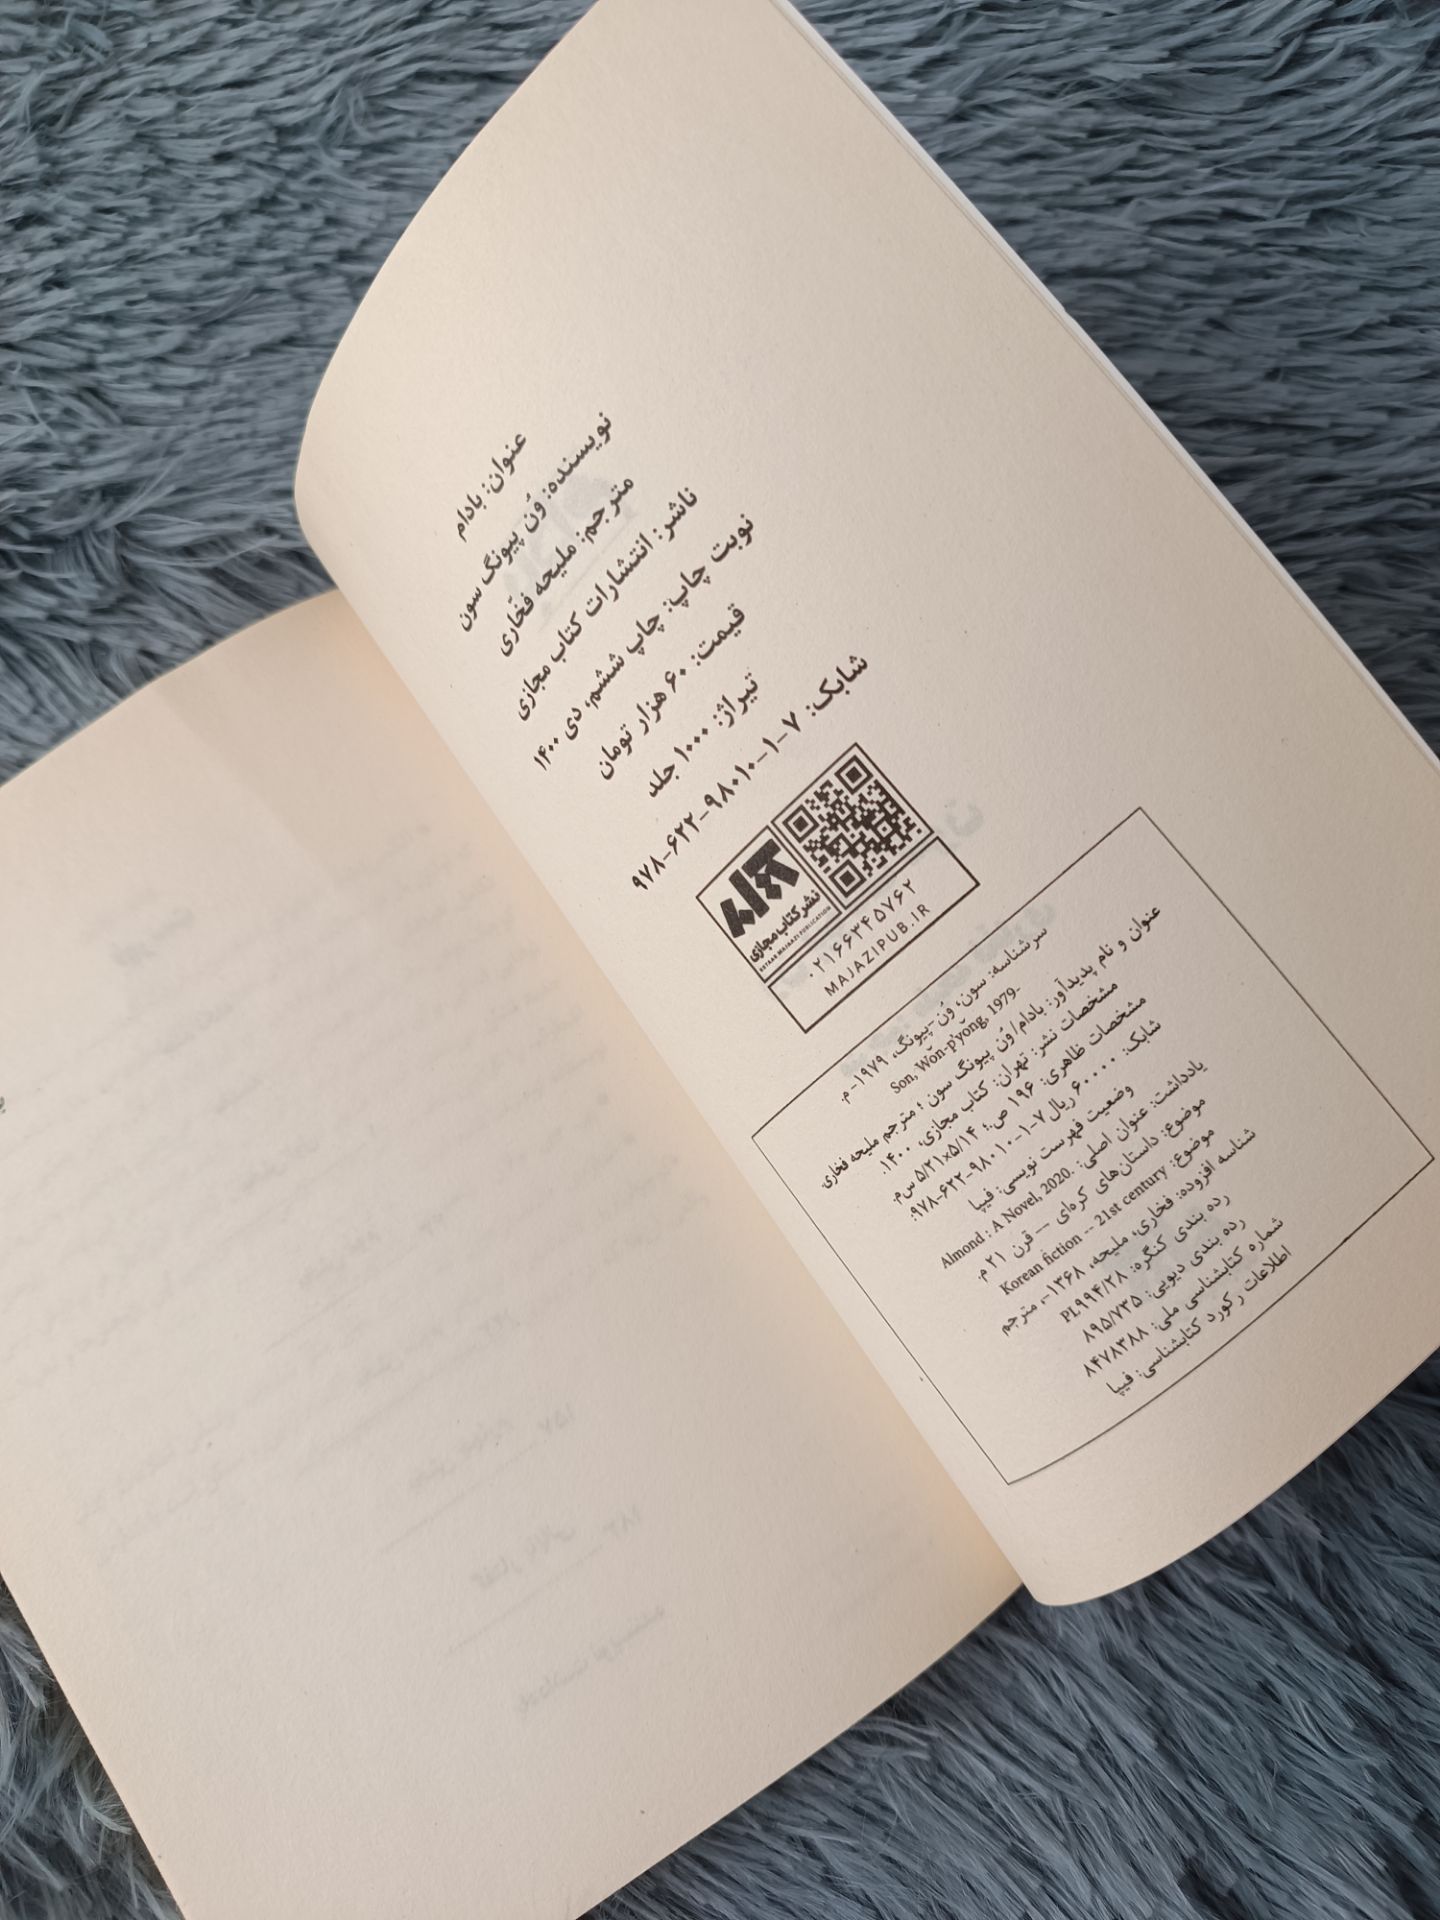 عنوان: بادام
نویسنده: وُن پیونگ سون
مترجم: ملیحه فخّاری
ناشر: انتشارات کتاب مجازی
نوبت چاپ: چاپ ششم، دی ۱۴۰۰
قیمت: ۶۰ هزار تومان
تیراژ: ۱۰۰۰ جلد
شابک: ۷-۱-۹۸۰۱۰-۶۲۲-۹۷۸
نشر کتاب مجازی
KETAAB MAJAAZI PUBLICATION
۰۲۱۶۶۳۴۵۷۶۲
MAJAZIPUB.IR
سرشناسه: سون، وُن-پیونگ، ۱۹۷۹- م.
Son, Wŏn-p'yŏng, 1979-
عنوان و نام پدیدآور: بادام/ وُن پیونگ سون ؛ مترجم ملیحه فخاری.
مشخصات نشر: تهران: کتاب مجازی، ۱۴۰۰.
مشخصات ظاهری: ۱۹۶ ص.؛ ۵/۲۱×۵/۱۴ س‌م.
شابک: ۶۰۰۰۰ ریال ۷-۱-۹۸۰۱۰-۶۲۲-۹۷۸:
وضعیت فهرست نویسی: فیپا
یادداشت: عنوان اصلی: Almond : A Novel, 2020.
موضوع: داستان‌های کره‌ای -- قرن ۲۱ م.
موضوع: Korean fiction -- 21st century
شناسه افزوده: فخاری، ملیحه، ۱۳۶۸-، مترجم
رده بندی کنگره: PL۹۹۴/۲۸
رده بندی دیویی: ۸۹۵/۷۳۵
شماره کتابشناسی ملی: ۸۴۷۸۳۸۸
اطلاعات رکورد کتابشناسی: فیپا